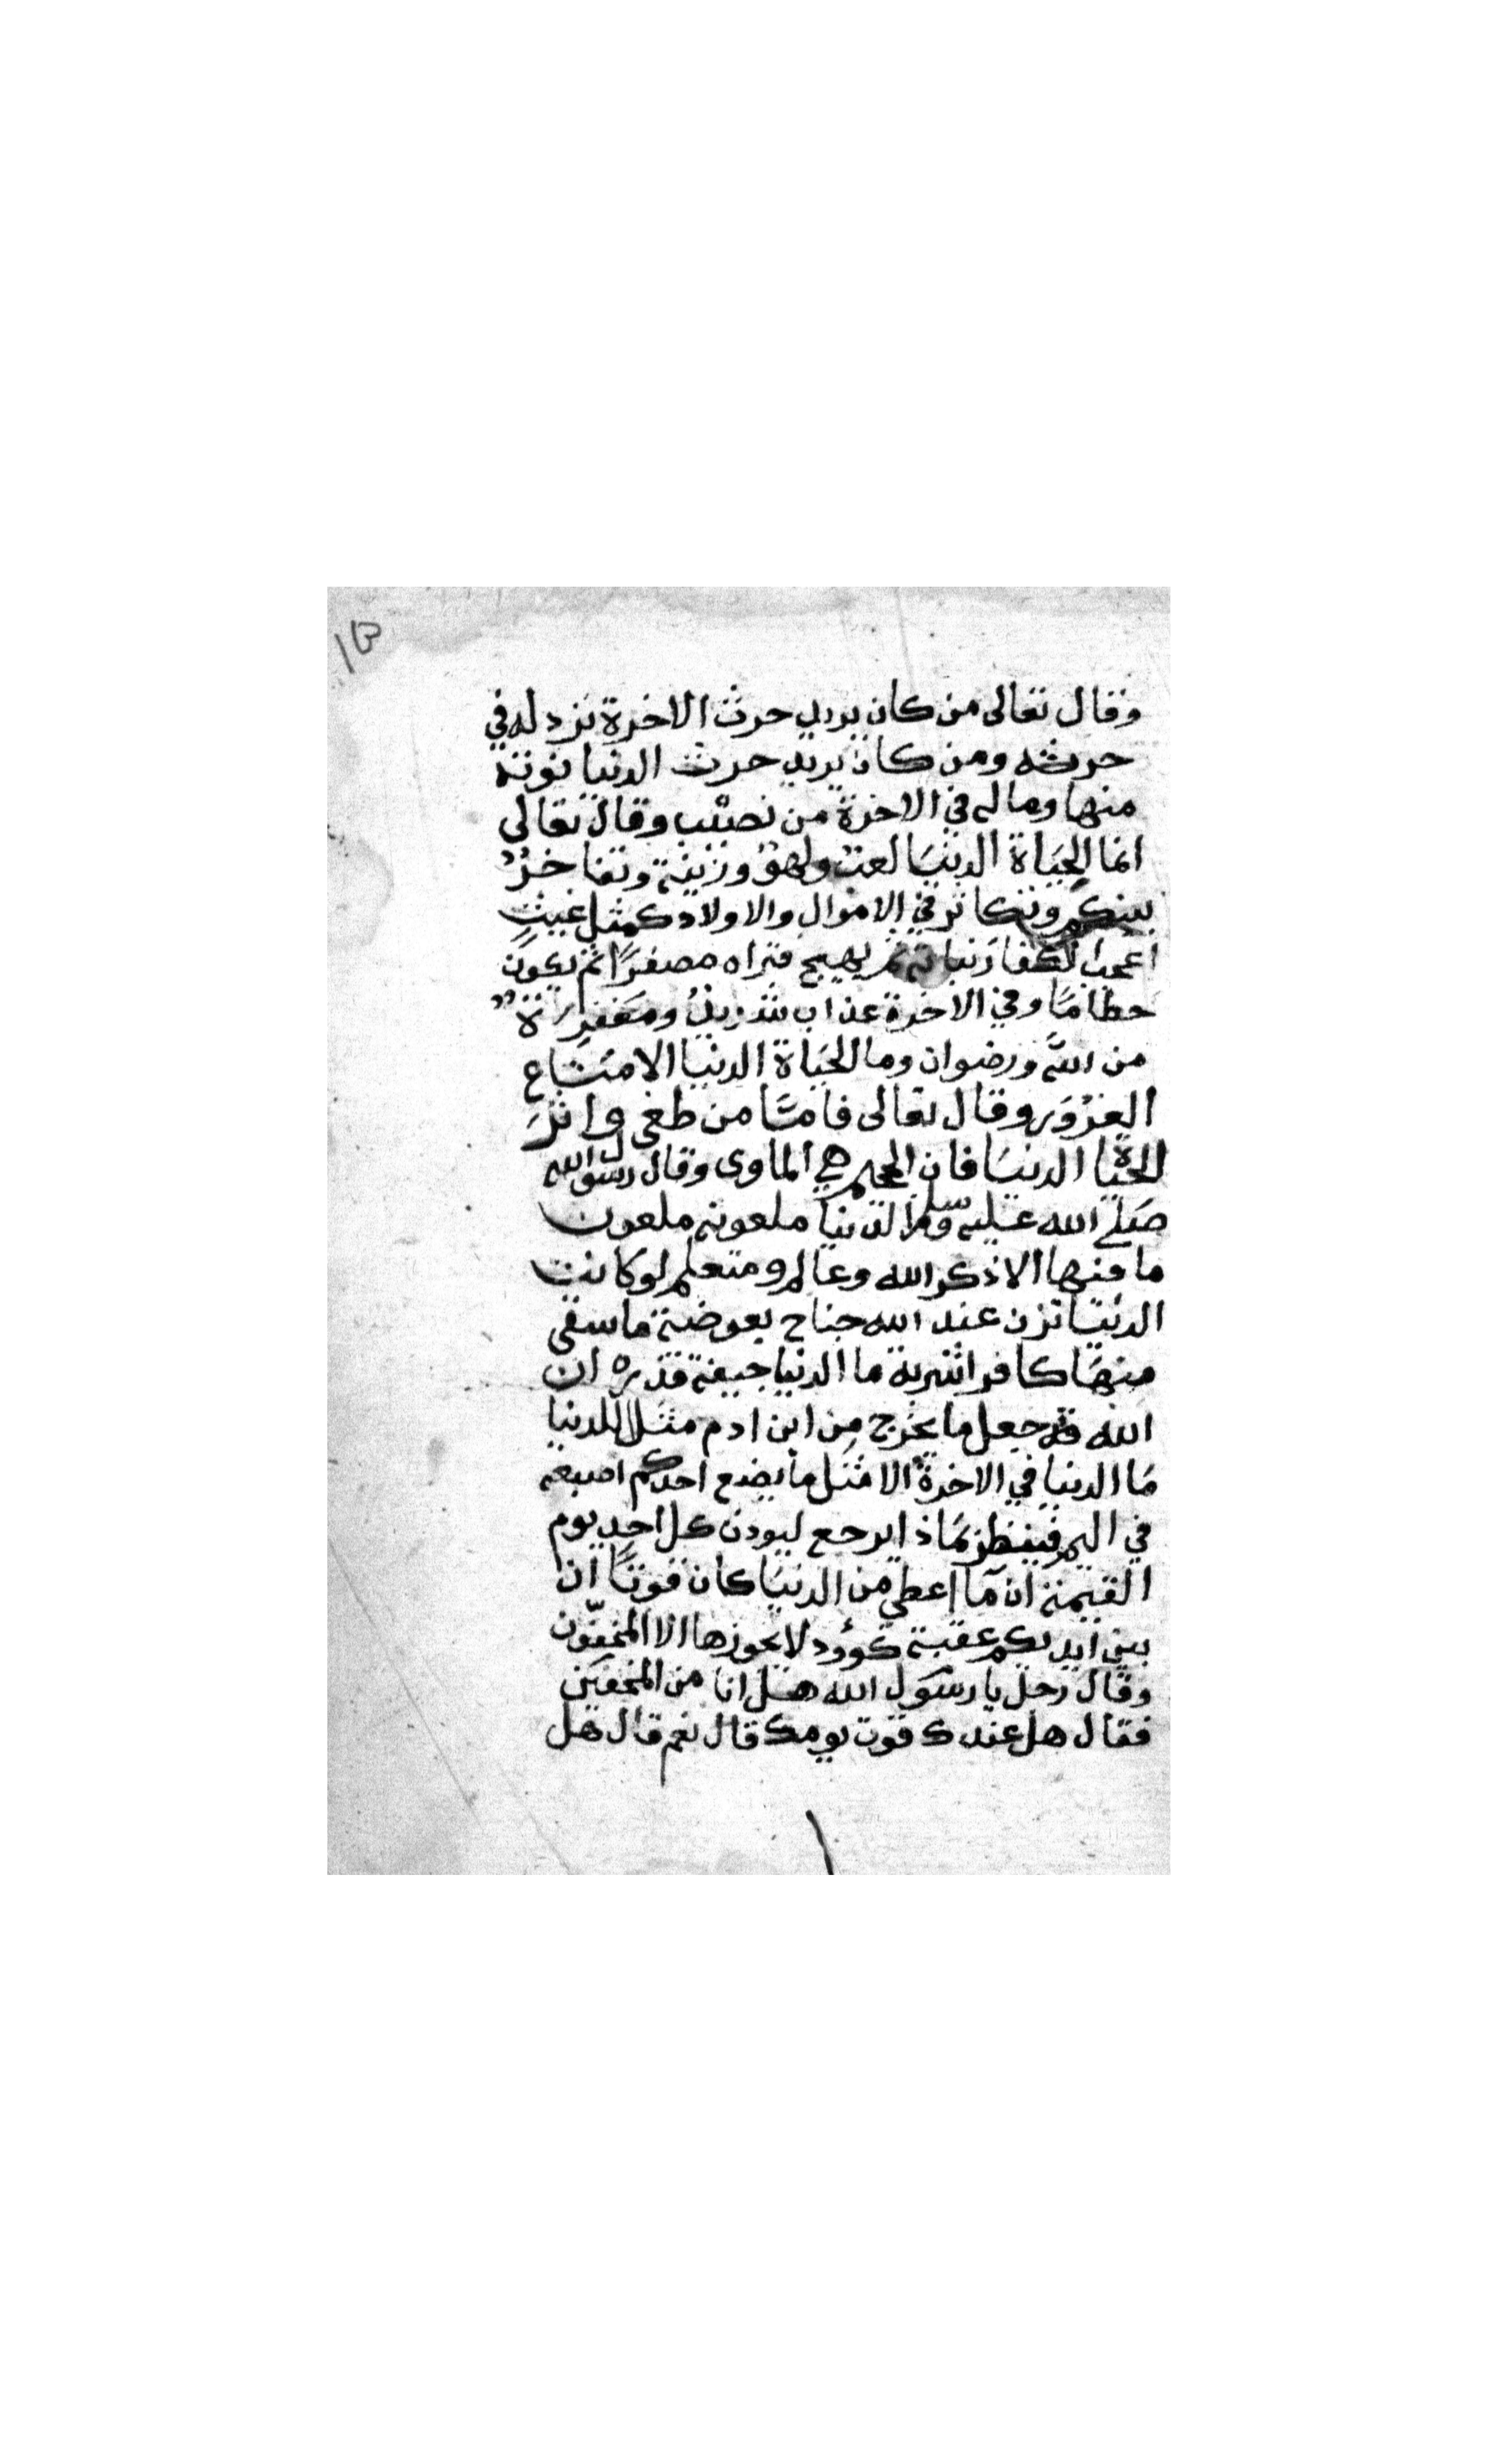 وقال تعالى من كان يريد حرث الاخرة نزد له في
حرثه ومن كان يريد حرث الدنيا نوته
منها وماله في الاخرة من نصيب وقال تعالى
انما الحياة الدنيا لعب ولهو وزينة وتفاخر
بينكم وتكاثر في الاموال والاولاد كمثل غيث
اعجب الكفار نباته ثم يهيج فتراه مصفرا ثم يكون
حطاما وفي الاخرة عذاب شديد ومغفرة
من الله ورضوان وما الحياة الدنيا الا متاع
الغرور وقال تعالى فاما من طغى واثر
الحياة الدنيا فان الجحيم هي الماوى وقال رسول الله
صلى الله عليه وسلم الدنيا ملعونة ملعون
ما فيها الا ذكر الله وعالم ومتعلم لو كانت
الدنيا تزن عند الله جناح بعوضة ما سقى
منها كافرا شربة ما الدنيا جيفة قذره ان
الله قد جعل ما يخرج من ابن ادم مثلا للدنيا
ما الدنيا في الاخرة الا مثل ما يضع احدكم اصبعه
في اليم فينظر بماذا يرجع ليودن كل احد يوم
القيمة ان ما اعطي من الدنيا كان قوتا ان
بين ايديكم عقبة كؤود لا يجوزها الا المخفون
وقال رجل يا رسول الله هل انا من المخفين
فقال هل عندك قوت يومك قال نعم قال هل